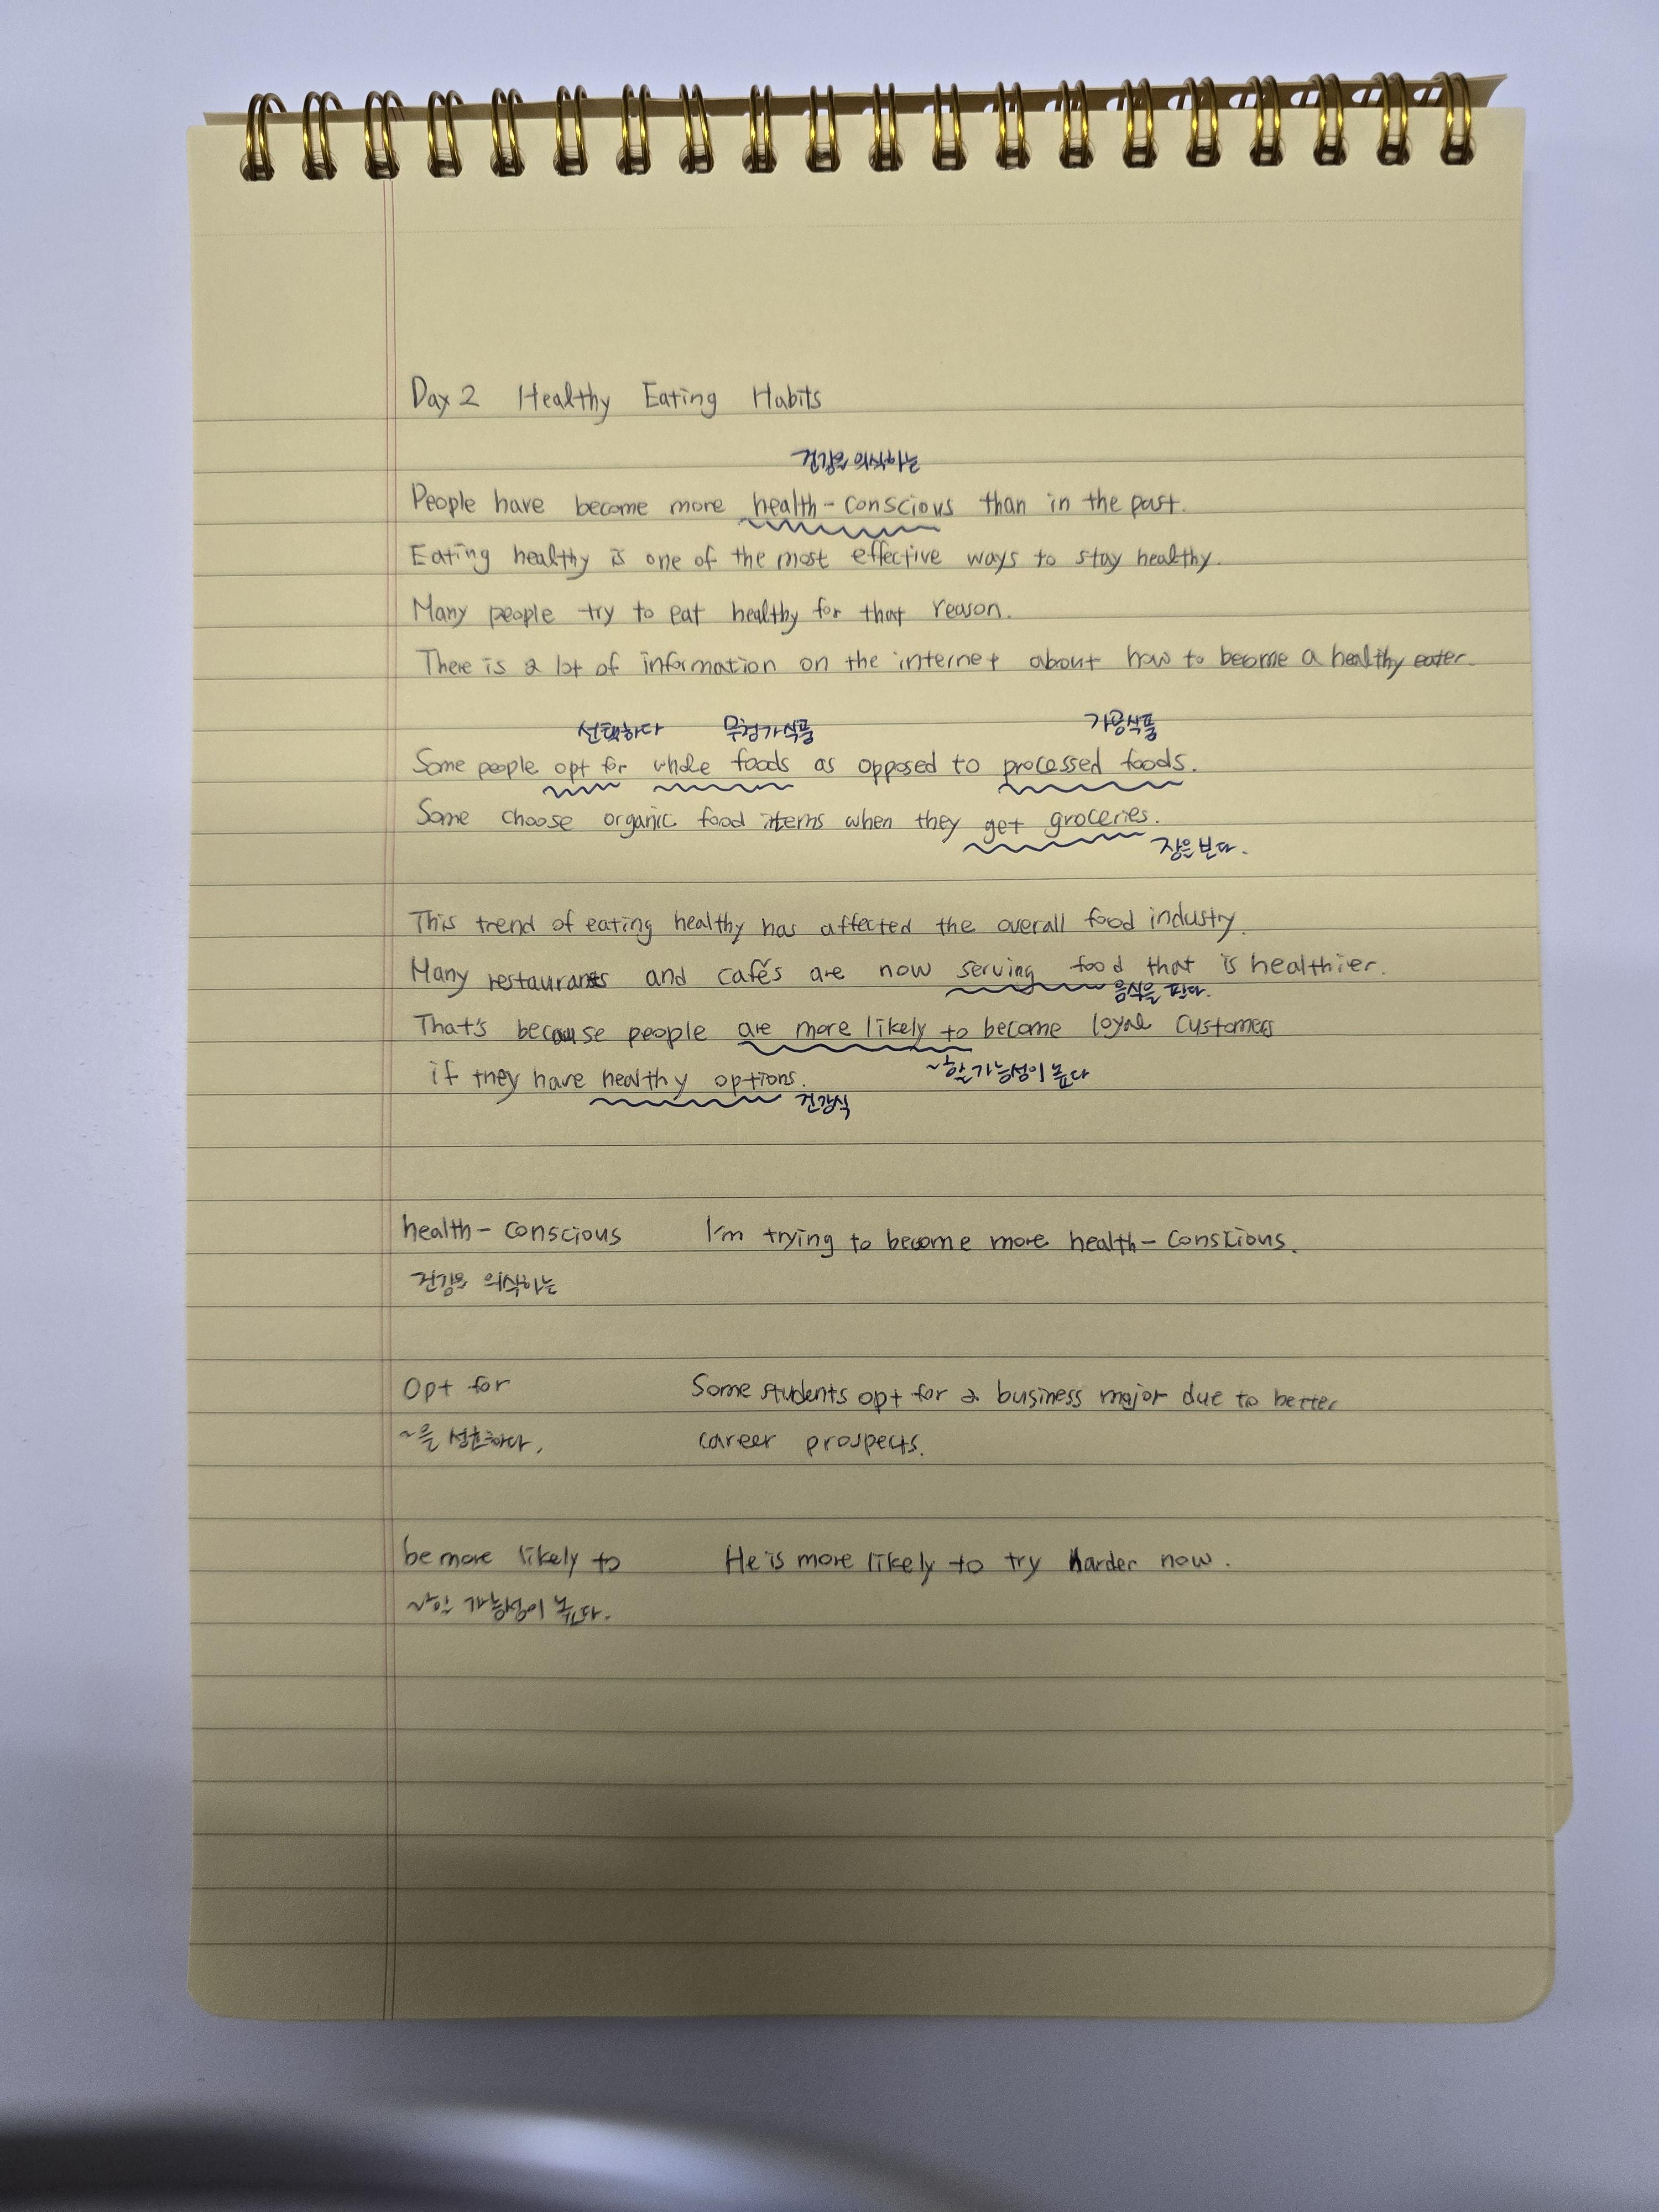 Day 2 Healthy Eating Habits
건강을 의식하는
People have become more health-conscious than in the past.
Eating healthy is one of the most effective ways to stay healthy.
Many people try to eat healthy for that reason.
There is a lot of information on the internet about how to become a healthy eater.
선택하다 무첨가식품 가공식품
Some people opt for whole foods as opposed to processed foods.
Some choose organic food items when they get groceries.
장을 본다.
This trend of eating healthy has affected the overall food industry.
Many restaurants and cafés are now serving food that is healthier.
음식을 판다.
That's because people are more likely to become loyal customers
~할 가능성이 높다
if they have healthy options.
건강식
health-conscious I'm trying to become more health-conscious.
건강을 의식하는
Opt for Some students opt for a business major due to better
~를 선택하다. career prospects.
be more likely to He is more likely to try harder now.
~할 가능성이 높다.